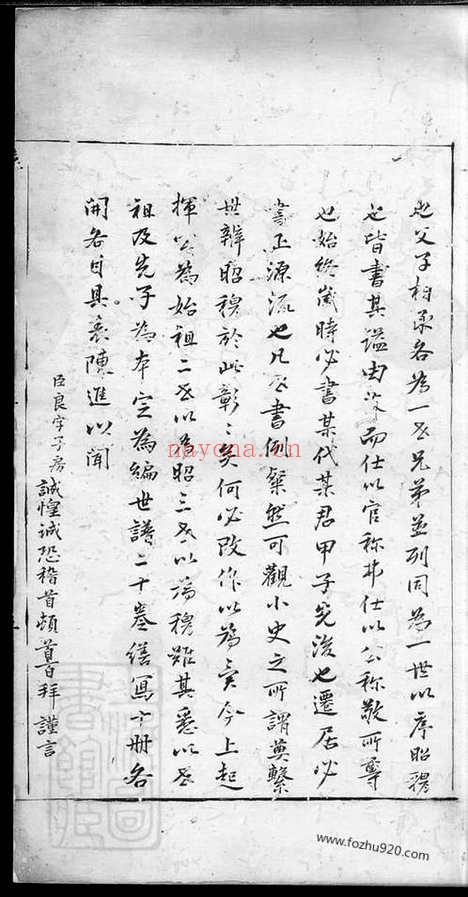 也父子相承各為一世兄弟並列同為一世以序昭穆
也皆書其諡由汝而仕以官称弗仕以公称敬所尊
也始終歲時必書某代某君甲子先後也遷居必
書正源流也凡世書例粲然可觀小史之所謂奠繫
世辨昭穆於此彰〻矣何必改作以為三矣今上起
揮公為始祖二世以為昭三世以為穆雖其悉以世
祖及先子為本定為編世譜二十卷繕寫十冊各
開各目具表陳進以聞
臣良字子房誠惶誠恐稽首頓首百拜謹言
nayona.cn
www.fozhu920.com